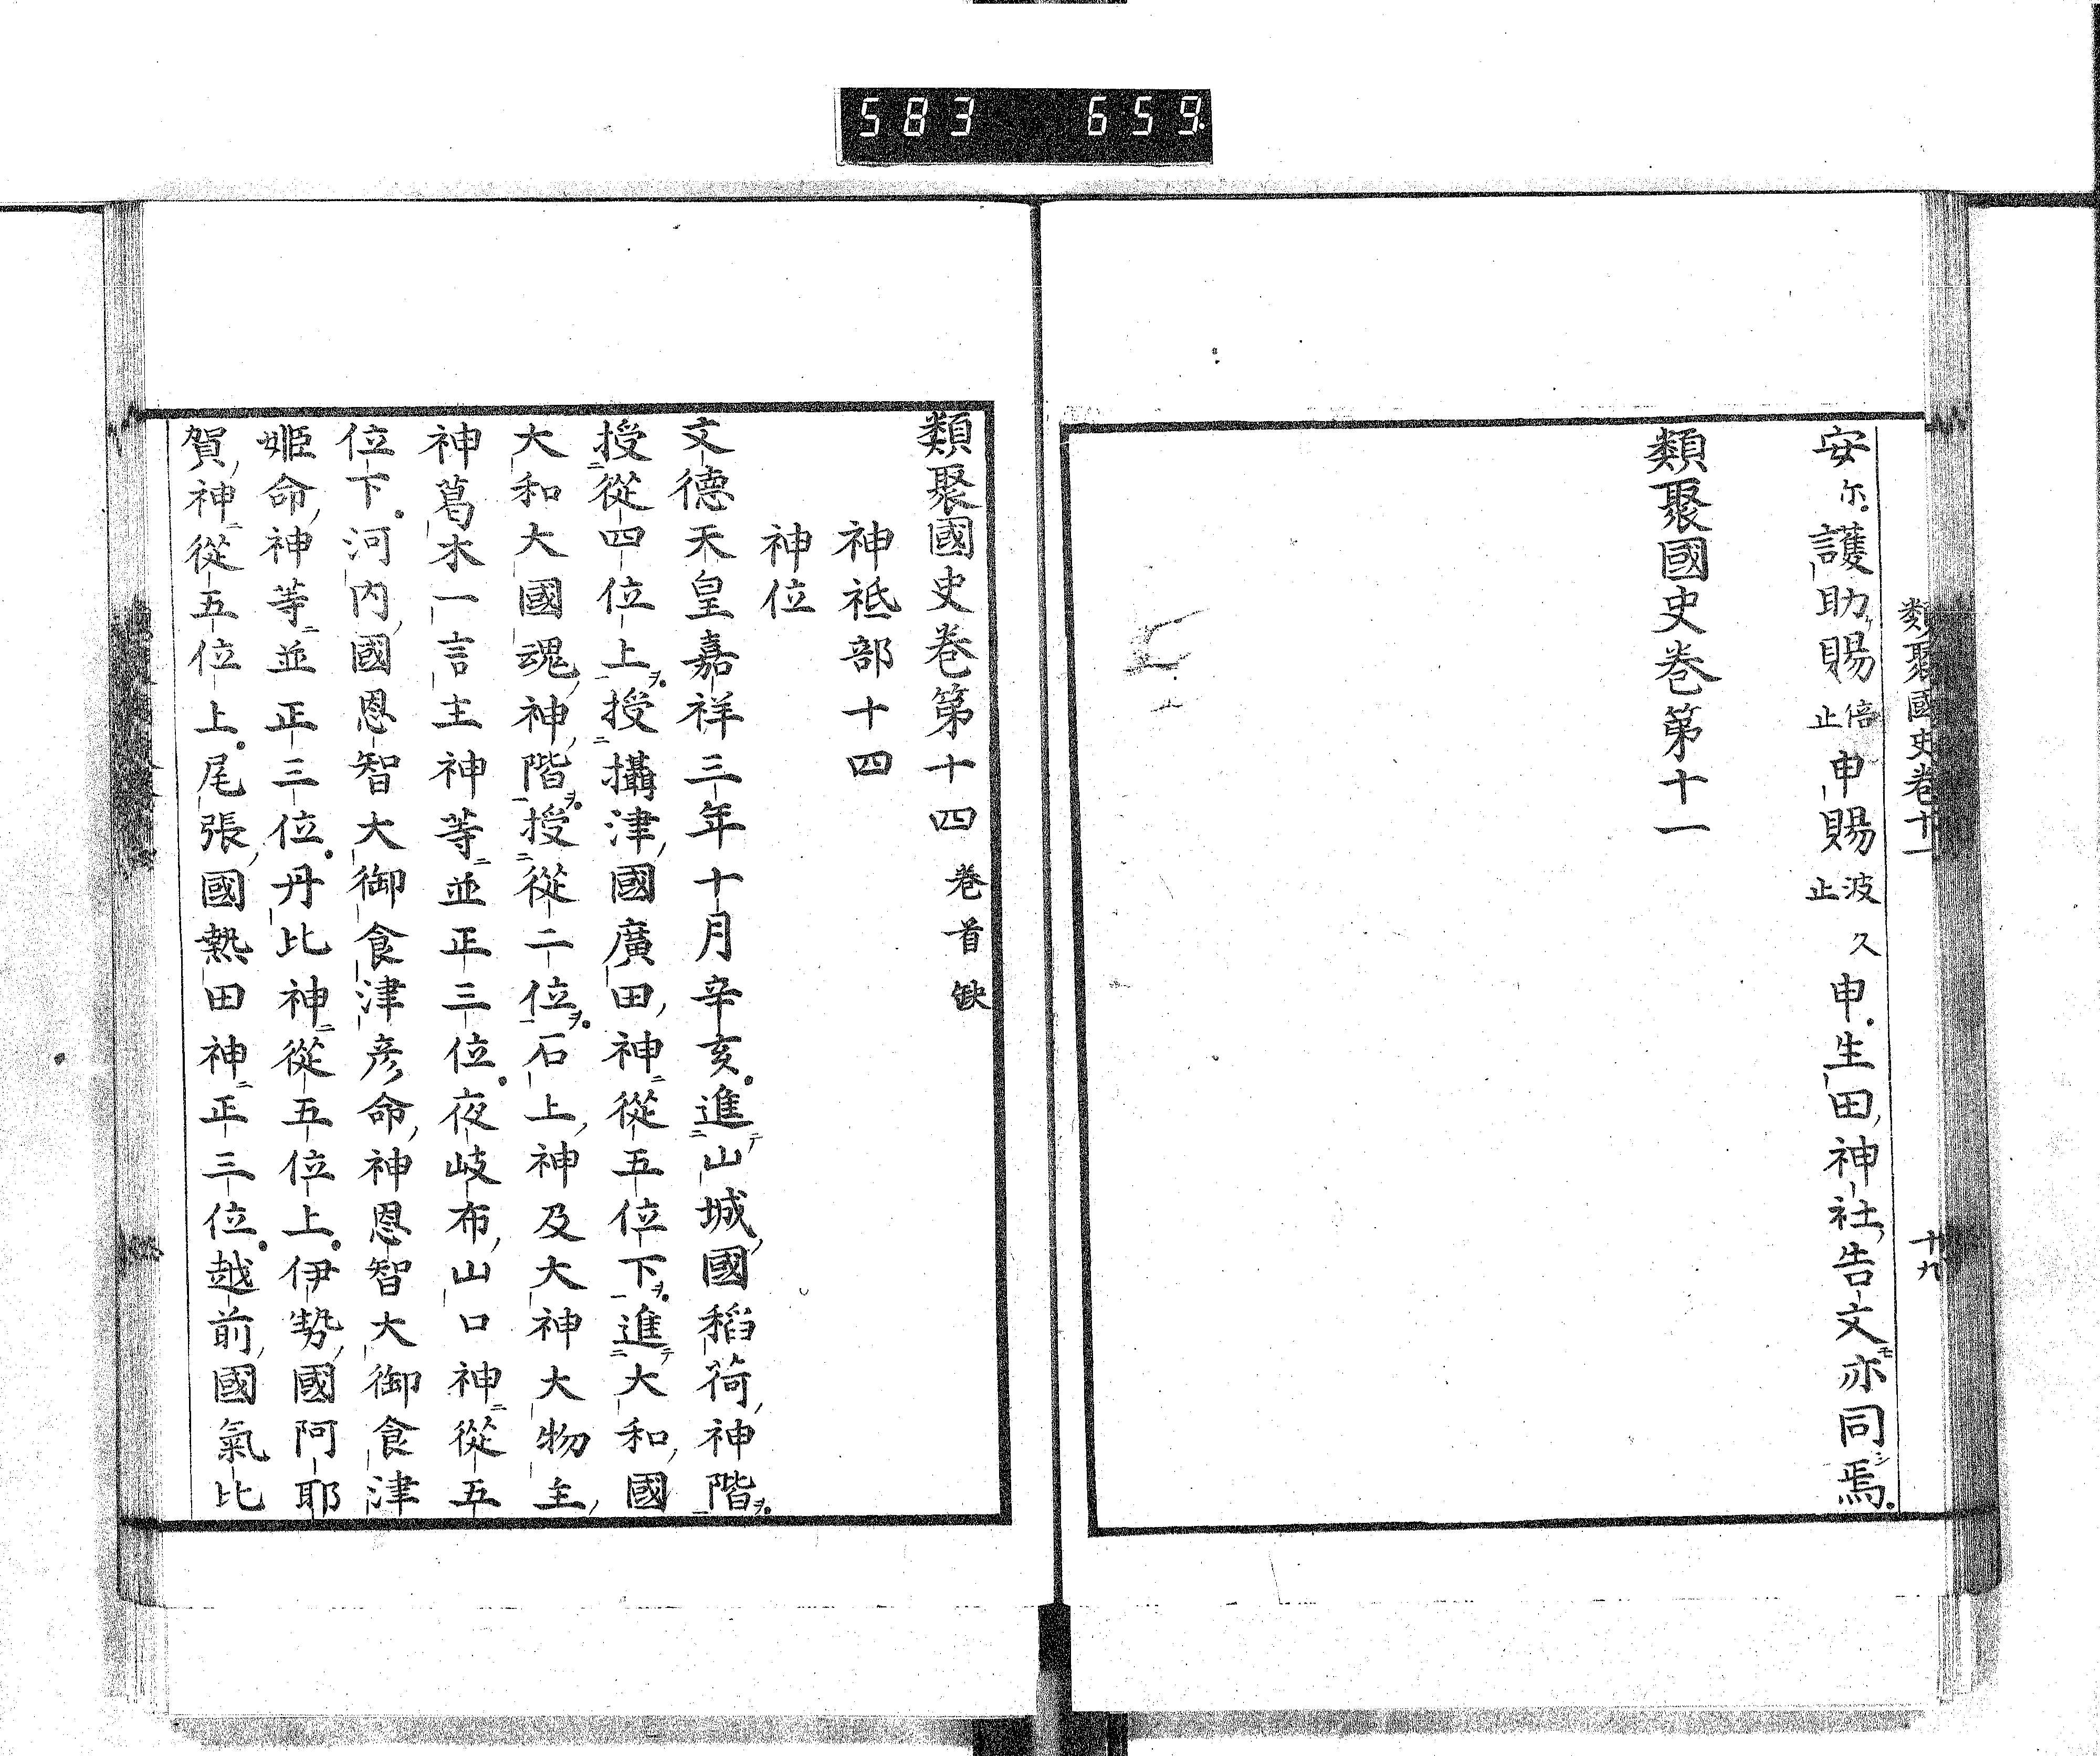 583 659
類聚國史卷十一 十九
安尓護助賜倍止申賜波久止申生田神社告文亦同焉
類聚國史卷第十一
類聚國史卷第十四 卷首缺
神祇部十四
神位
文德天皇嘉祥三年十月辛亥進山城國稻荷神階
授從四位上授攝津國廣田神從五位下進大和國
大和大國魂神階授從二位石上神及大神大物主
神葛木一言主神等並正三位夜岐布山口神從五
位下河內國恩智大御食津彥命神恩智大御食津
姬命神等並正三位丹比神從五位上伊勢國阿耶
賀神從五位上尾張國熱田神正三位越前國氣比